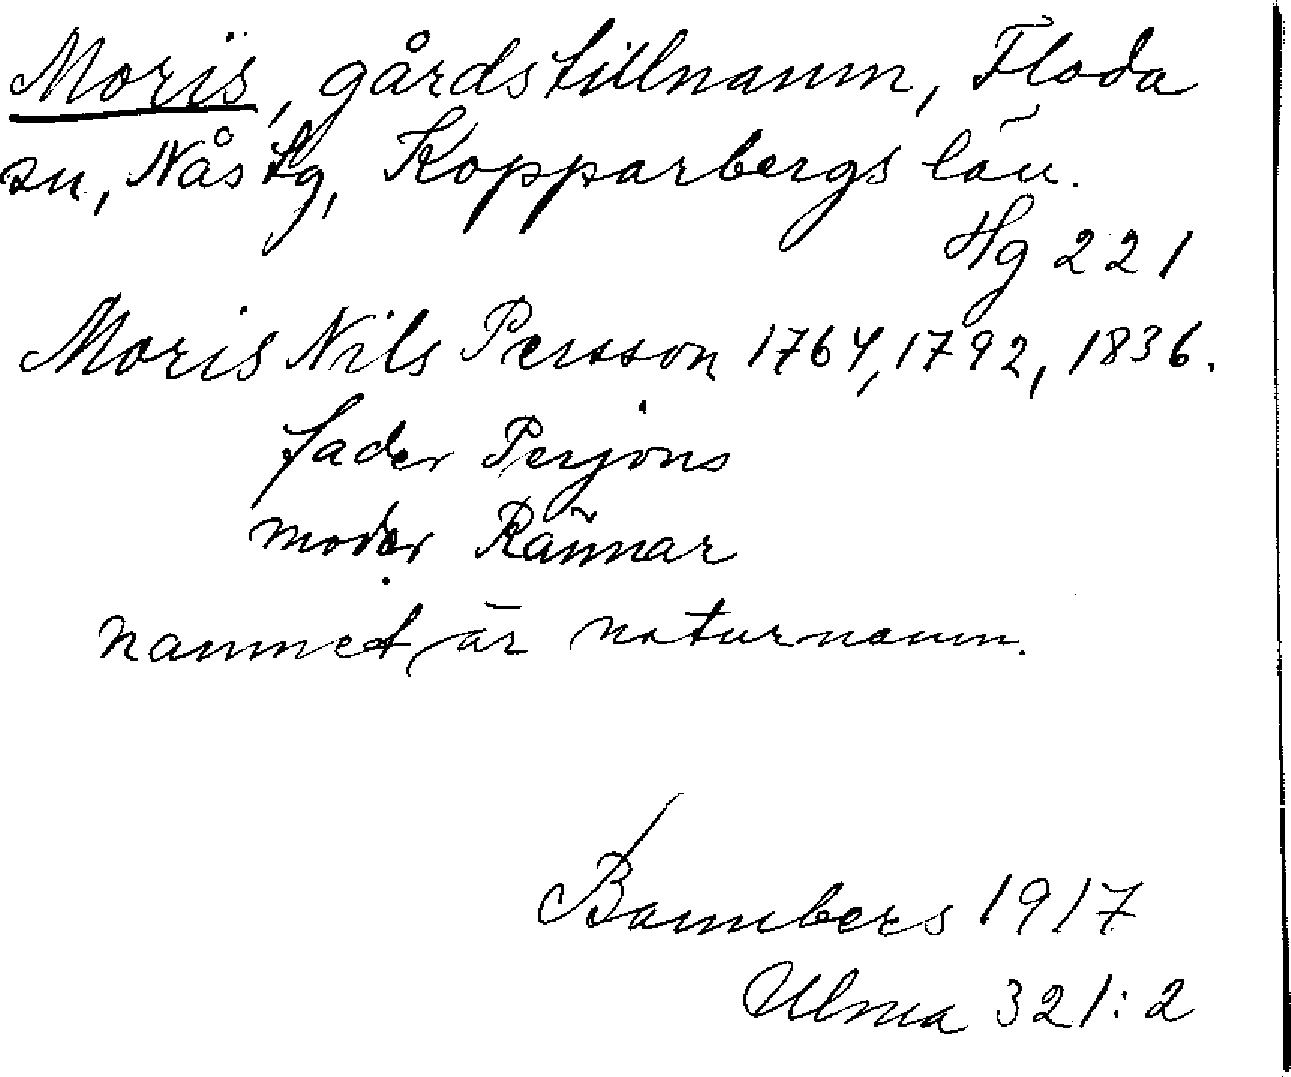 Moris, gårdstillnamn, Floda
sn, Nås tg, Kopparbergs län.
Hg 221
Moris Nils Persson 1764, 1792, 1836.
fader Perjons
moder Rännar
namnet är naturnamn.
1917
Ulma 321:2